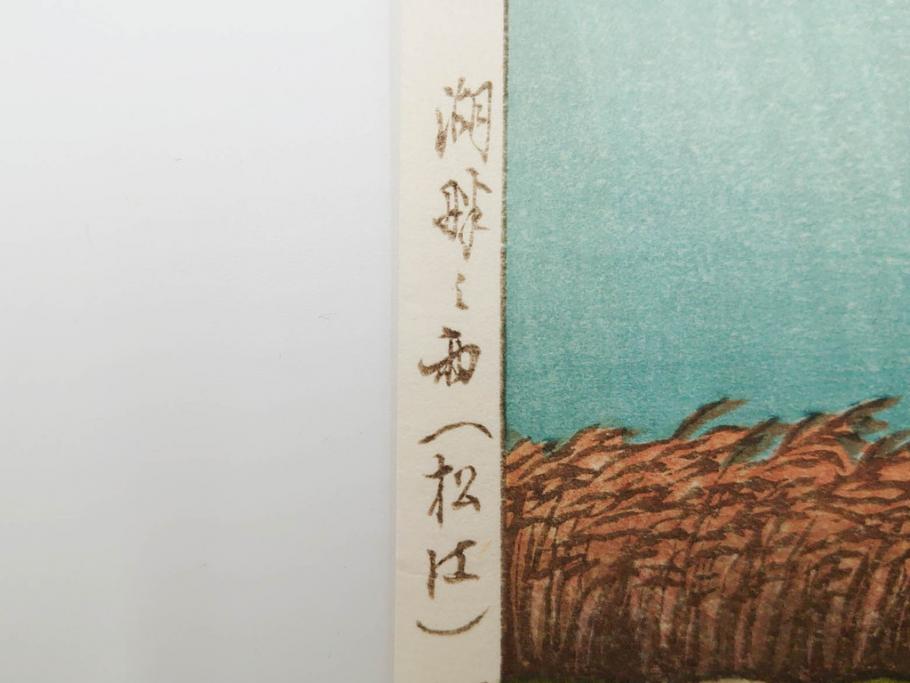 湖畔之雨(松江)